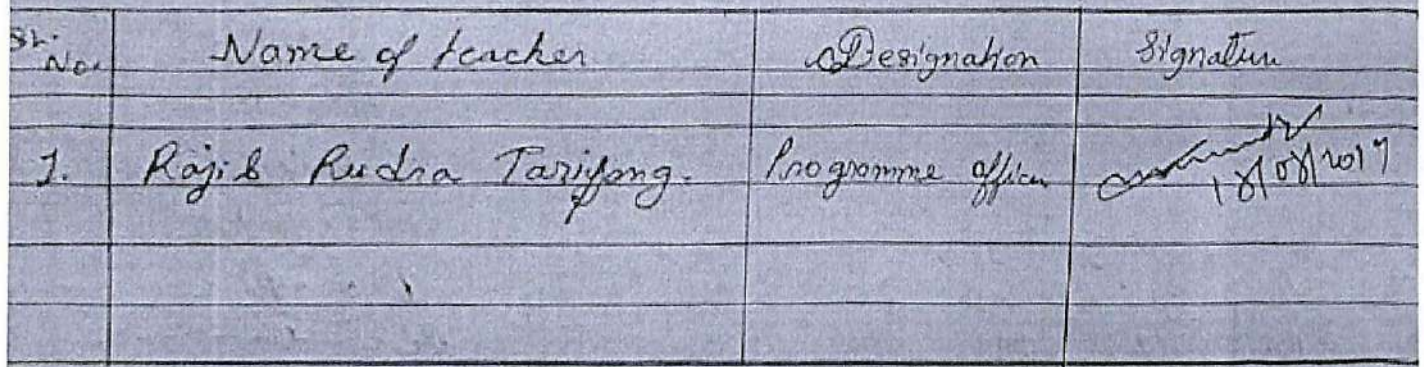 Sl. No. Name of teacher Designation Signature
1. Rajib Rudra Tariyang. Programme officer 18/08/2019